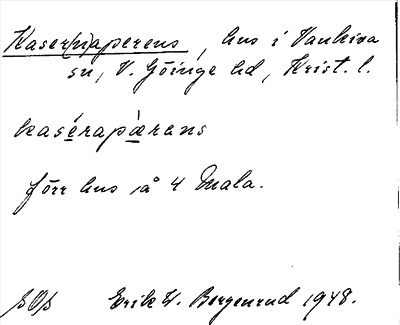 Kaser(ni)aperens, hus i Vankiva
sn, V. Göinge hd, Krist. l.
kasérapærens
förr hus på 4 Mala.
SOs Erik W. Bergenrud 1948.